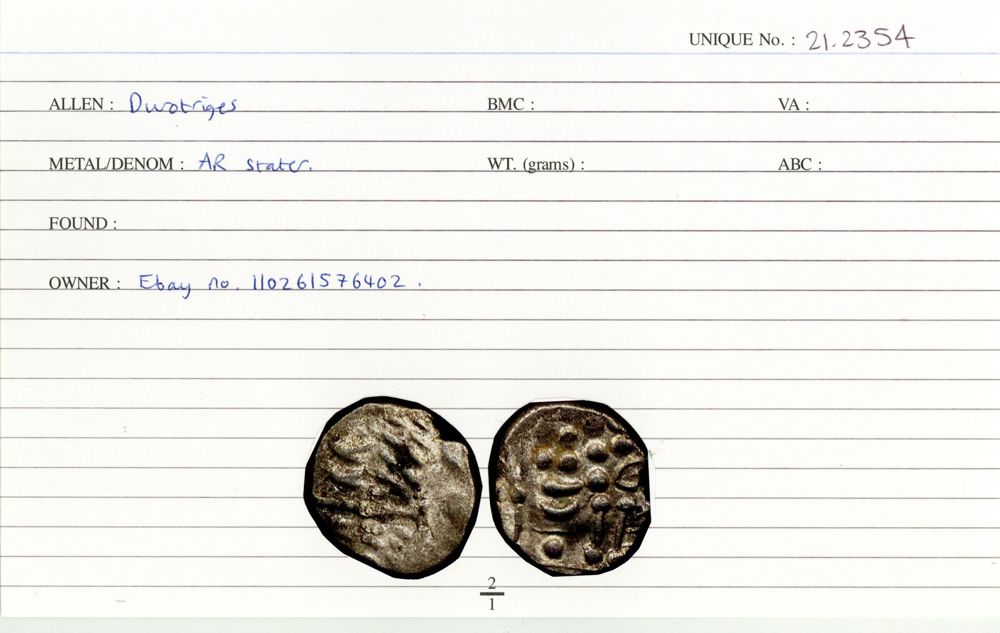 UNIQUE No. : 21.2354
ALLEN : Durotriges BMC : VA :
METAL/DENOM : AR stater. WT. (grams) : ABC :
FOUND :
OWNER : Ebay no. 110261576402 .
2
1